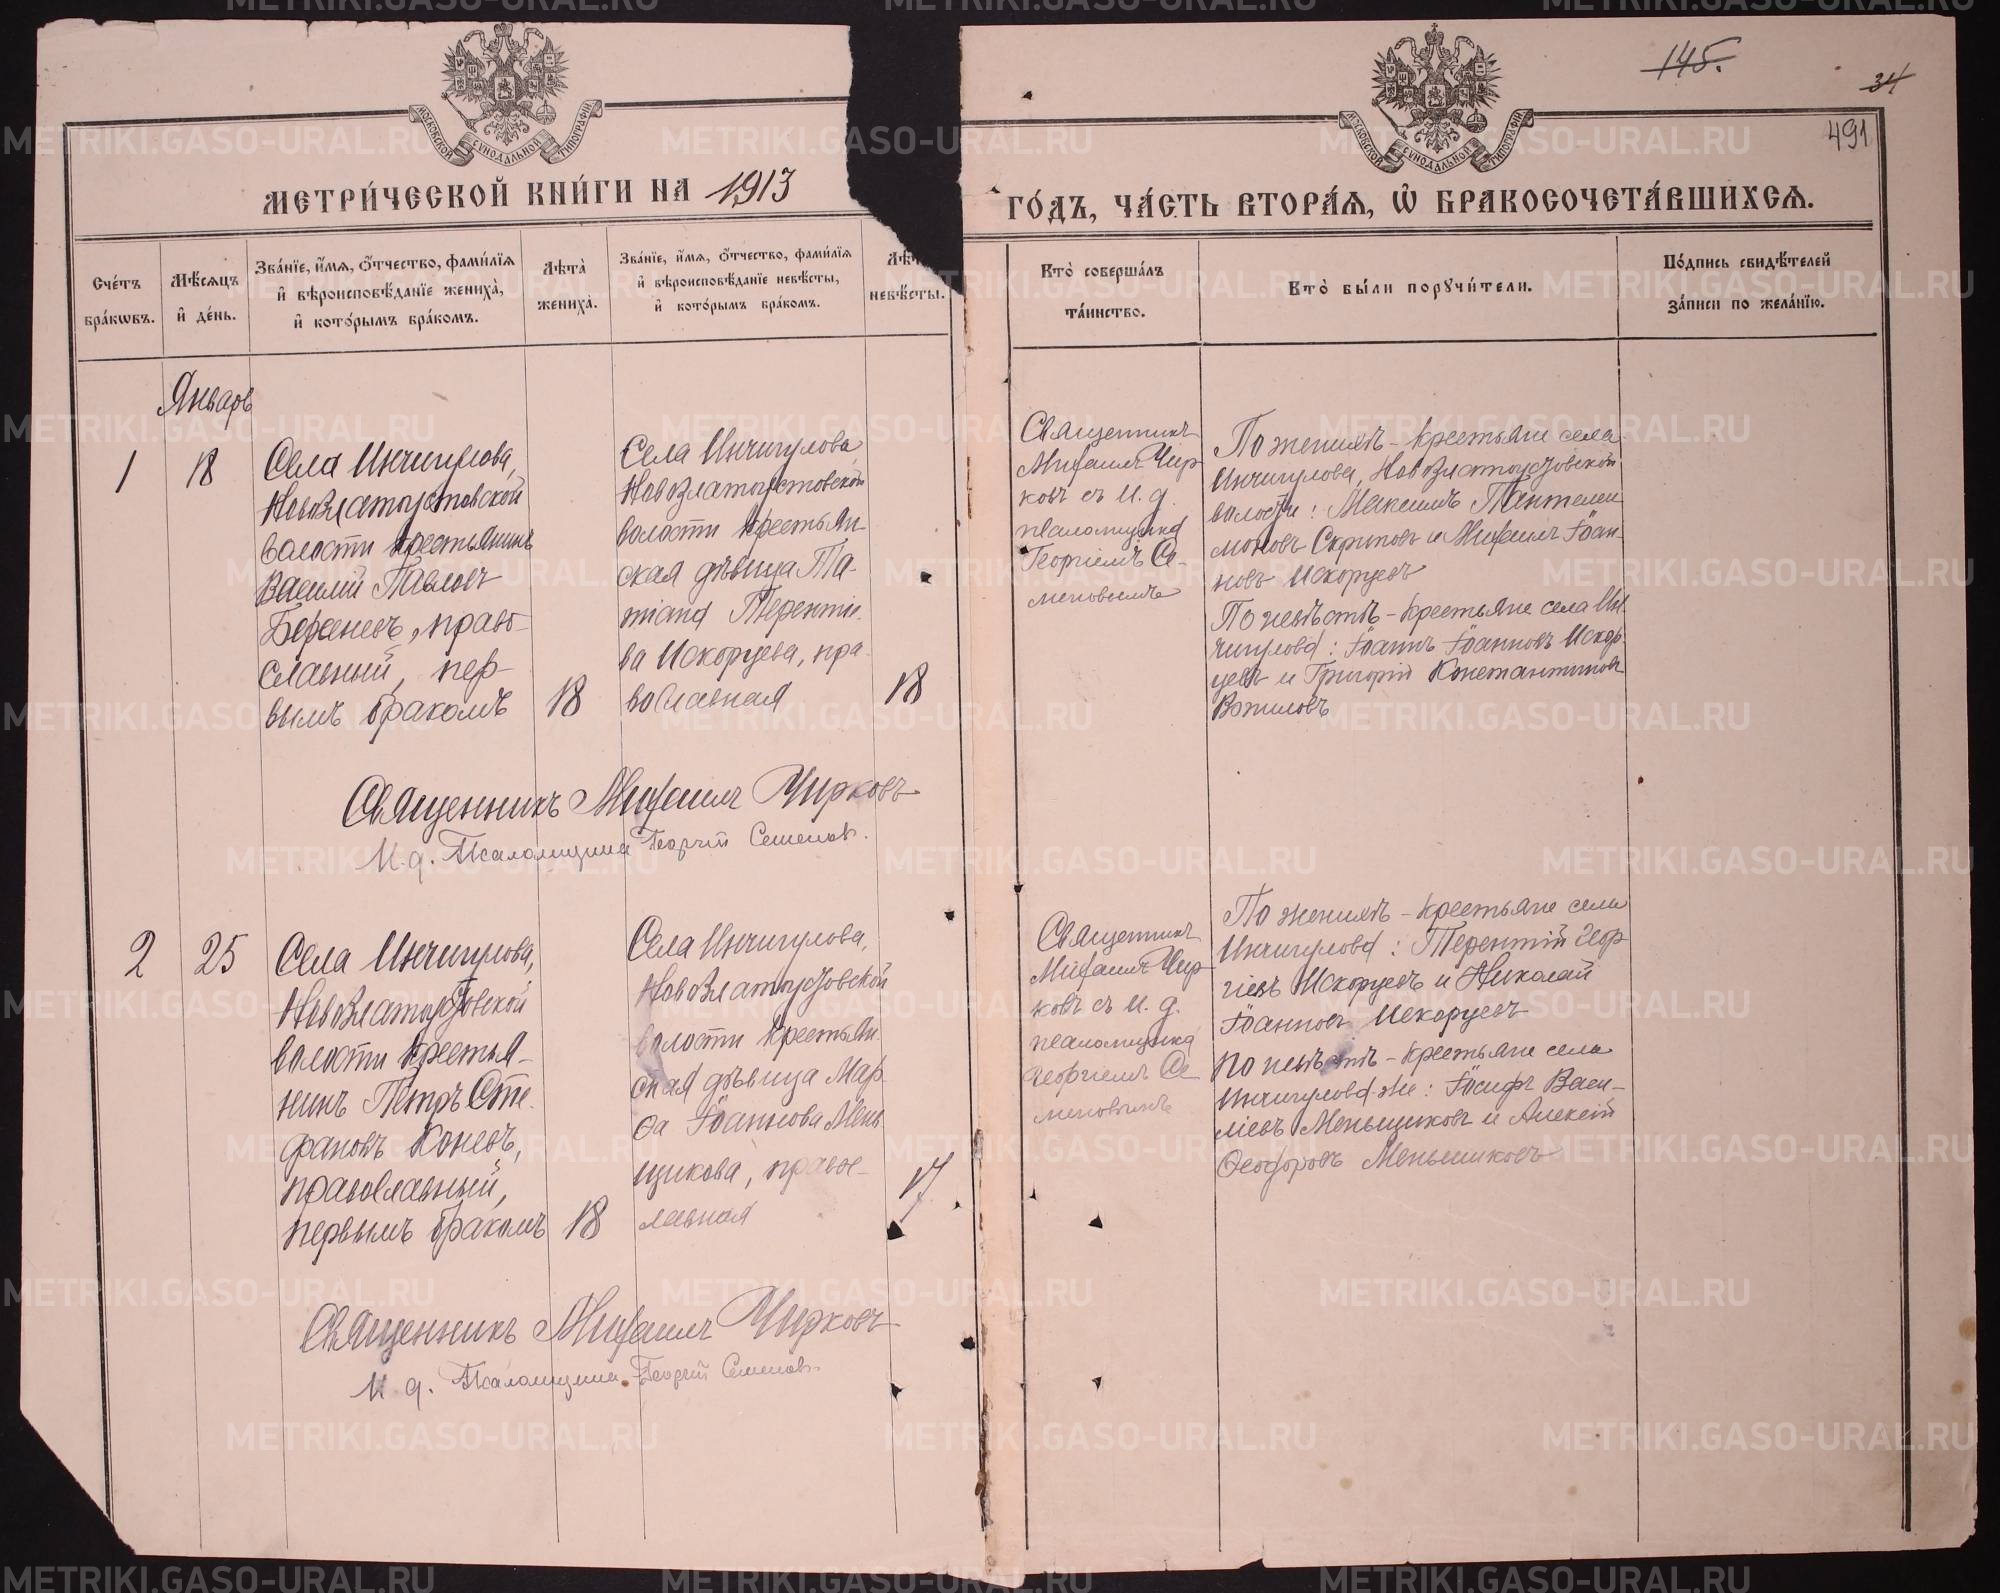 145.
34
491
МОСКОВСКОЙ СѴНОДАЛЬНОЙ ТИПОГРАФІИ
МОСКОВСКОЙ СѴНОДАЛЬНОЙ ТИПОГРАФІИ
МЕТРИ́ЧЕСКОЙ КНИ́ГИ НА 1913
ГО́ДЪ, ЧА́СТЬ ВТОРА́Ѧ, Ѡ БРАКОСОЧЕТА́ВШИХСѦ.
Сче́тъ
бра́кѡвъ.
Мѣ́сѧцъ
и҆ де́нь.
Зва́нїе, и҆́мѧ, ѻ҆́тчество, фами́лїѧ
и҆ вѣроисповѣ́данїе жениха̀,
и҆ кото́рымъ бра́комъ.
Лѣ́та
жениха̀.
Зва́нїе, и҆́мѧ, ѻ҆́тчество, фами́лїѧ
и҆ вѣроисповѣ́данїе невѣ́сты,
и҆ кото́рымъ бра́комъ.
Лѣ́т
невѣ́сты.
Кто̀ соверша́лъ
та́инство.
Кто̀ бы́ли порꙋчи́тели.
По́дпись свидѣ́телей
за́писи по жела́нїю.
Январь
1
18
Села Инчигулова,
Новозлатоустовской
волости крестьянинъ
Василій Павловъ
Береневъ, право-
славный, пер-
вымъ бракомъ
18
Села Инчигулова,
Новозлатоустовской
волости крестьян-
ская дѣвица Та-
тіана Терентіе-
ва Искорцева, пра-
вославная
18
Священникъ
Михаилъ Чир-
ковъ съ И. д.
псаломщика
Георгіемъ Се-
меновымъ
По женихѣ - крестьяне села
Инчигулова, Новозлатоустовской
волости: Максимъ Пантелеи-
моновъ Скрипов и Михаилъ Іоан-
новъ Искорцевъ
По невѣстѣ - крестьяне села Ин-
чигулова: Іоаннъ Іоанновъ Искор-
цевъ и Григорій Константиновъ
Вотиловъ
Священникъ Михаилъ Чирковъ
И. д. Псаломщика Георгій Семеновъ.
2
25
Села Инчигулова,
Новозлатоустовской
волости крестья-
нинъ Петръ Сте-
фановъ Коневъ,
православный,
первымъ бракомъ
18
Села Инчигулова,
Новозлатоустовской
волости крестьян-
ская дѣвица Мар-
ѳа Іоаннова Мень-
щикова, правос-
лавная
17
Священникъ
Михаилъ Чир-
ковъ съ И. д.
псаломщика
Георгіемъ Се-
меновымъ
По женихѣ - крестьяне села
Инчигулова: Терентій Геор-
гіевъ Искорцевъ и Николай
Іоанновъ Искорцевъ
По невѣстѣ - крестьяне села
Инчигулова-же: Іосифъ Васи-
ліевъ Меньщиковъ и Алексій
Ѳеодоровъ Меньшиковъ
Священникъ Михаилъ Чирковъ
И. д. Псаломщика Георгій Семеновъ.